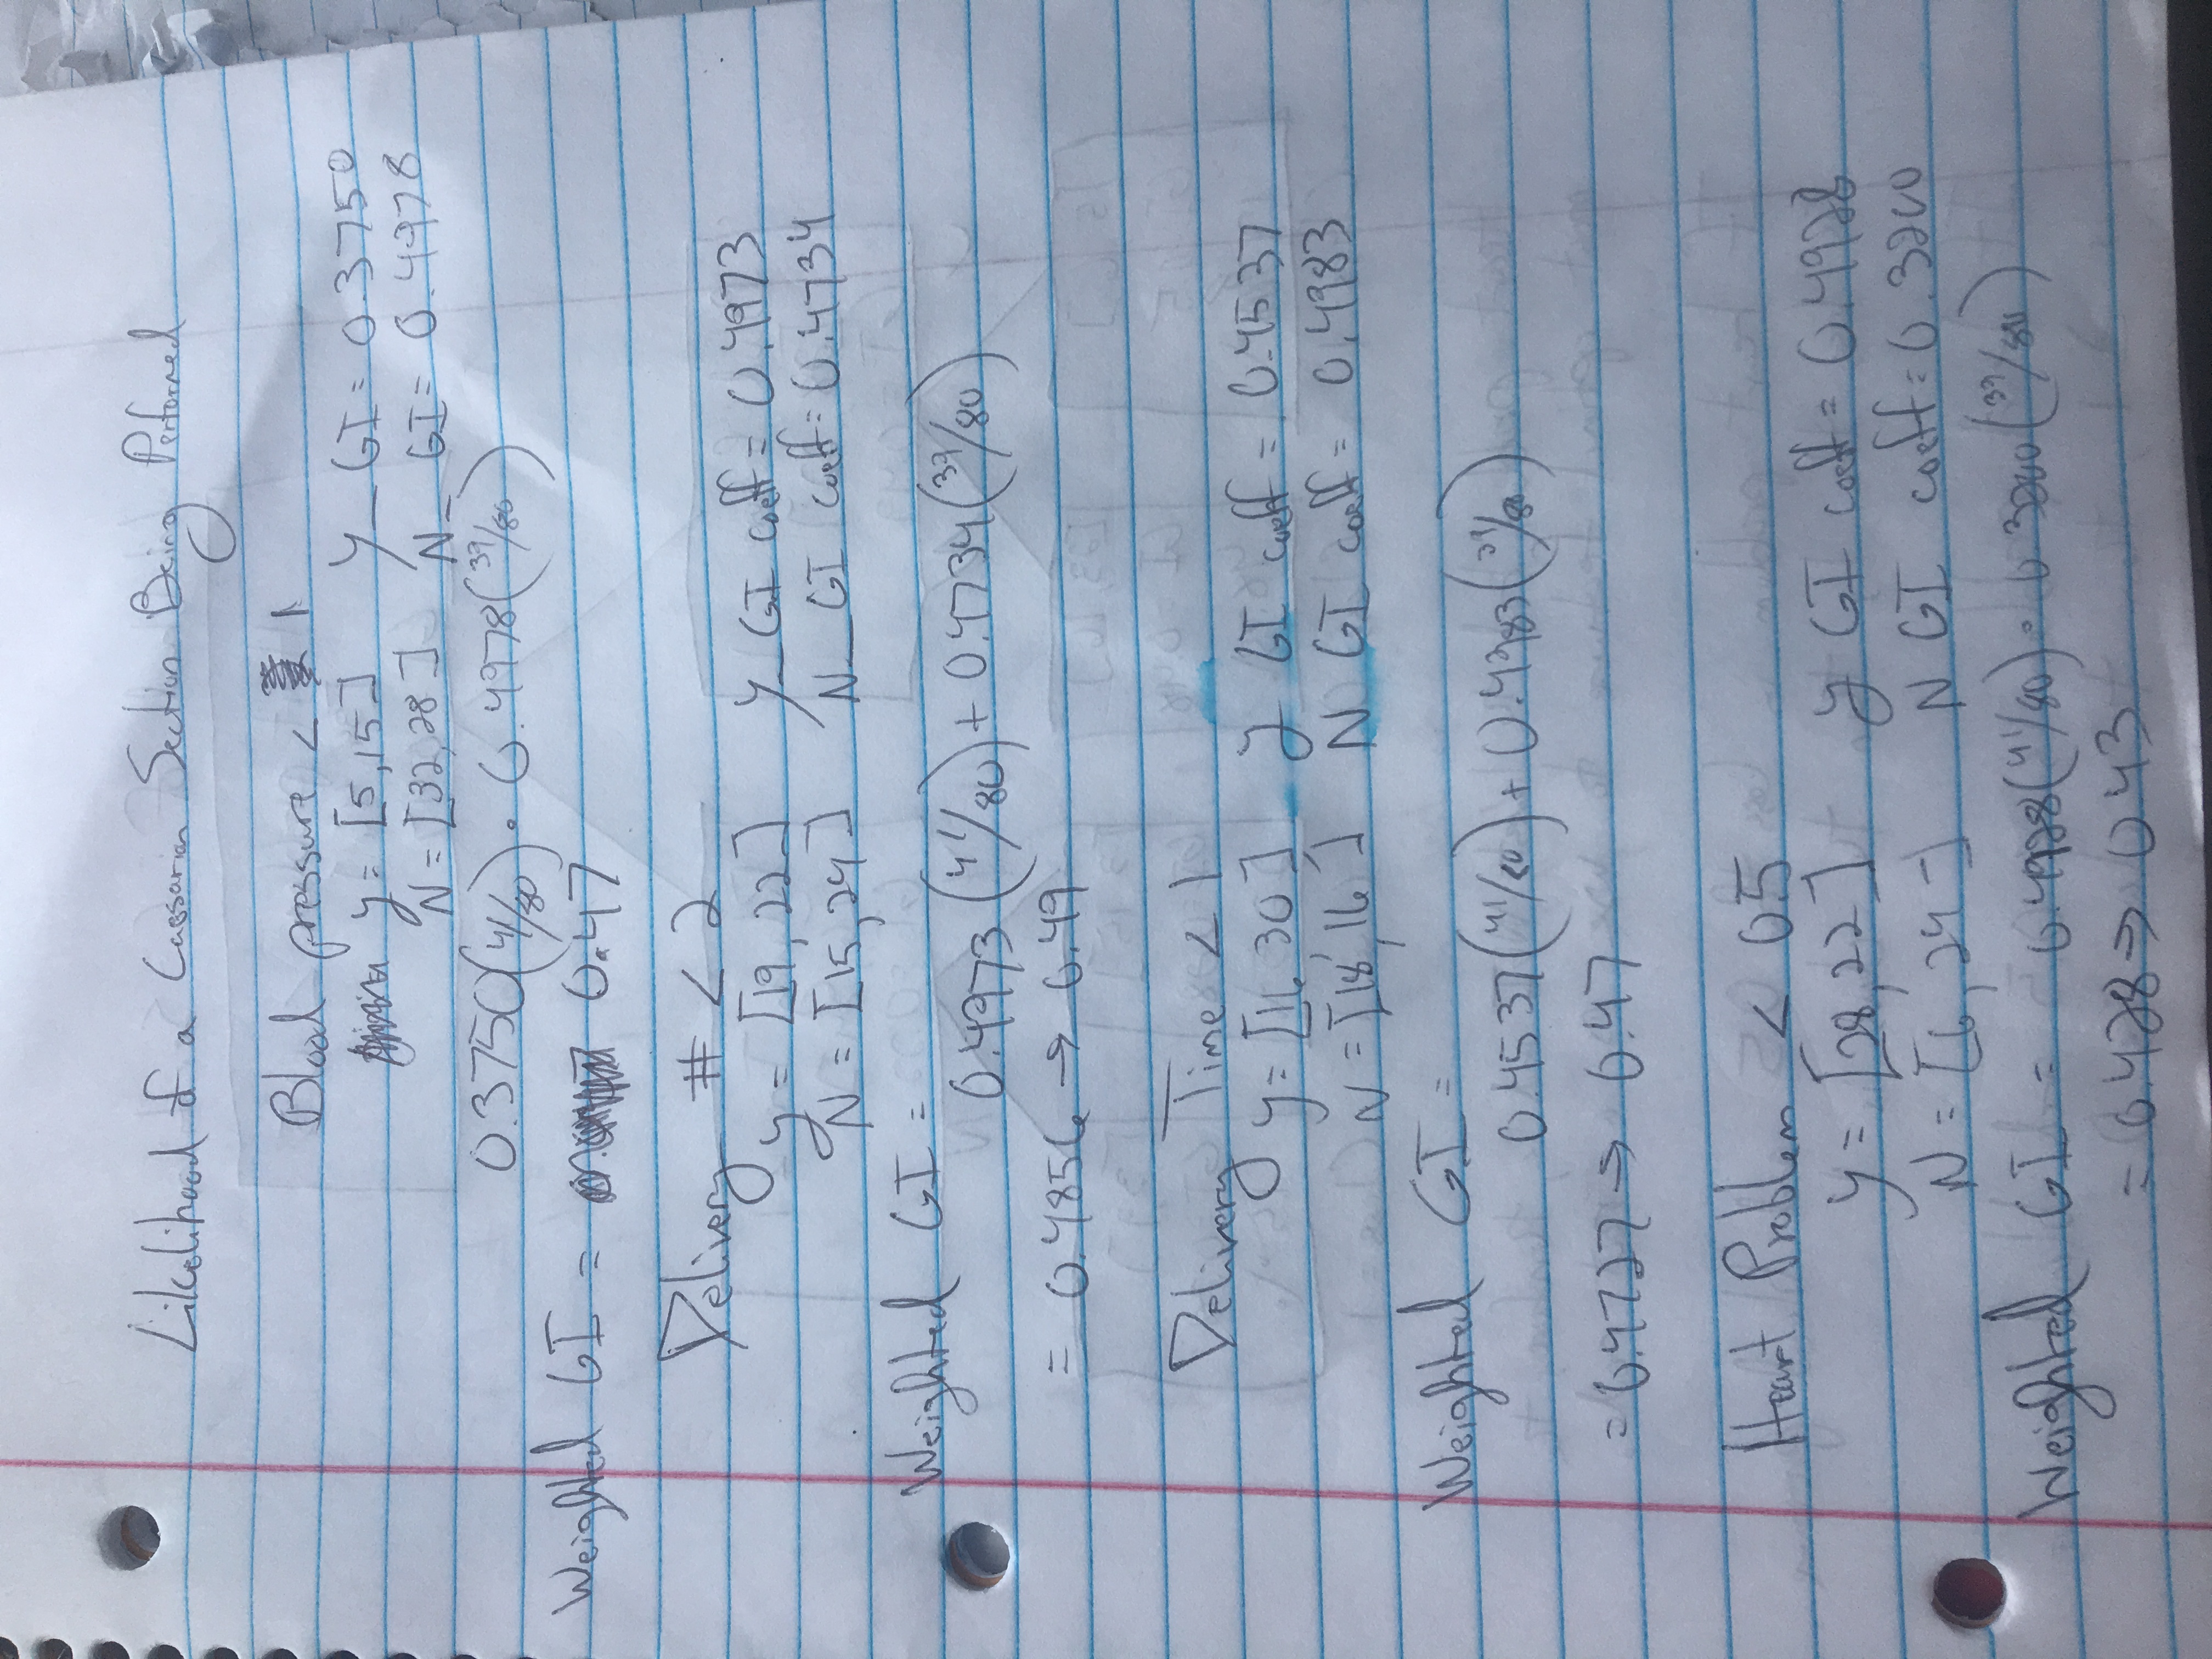 Likelihood of a Caesarian Section Being Performed
Blood pressure < 1
y = [5,15] Y_ GI = 0.3750
N = [32,28] N_ GI = 0.4978
0.3750(41/80) • 0.4978(39/80)
Weighted GI = 0.47
Delivery # < 2
y = [19, 22] Y_ GI coeff = 0.4973
N = [15, 24] N_ GI coeff = 0.4734
Weighted GI =
0.4973 (41/80) + 0.4734 (39/80)
= 0.4856 → 0.49
Delivery Time < 1
y = [16,30] y GI coeff = 0.4537
N = [18,16] N GI coeff = 0.4983
Weighted GI =
0.4537(41/80) + 0.4983(39/80)
= 0.4727 → 0.47
Heart Problem < 0.5
y = [28,22] y GI coeff = 0.4928
N = [6,24] N GI coeff = 0.3200
Weighted GI = 0.4928(41/80) • 0.3200(39/80)
= 0.428 → 0.43